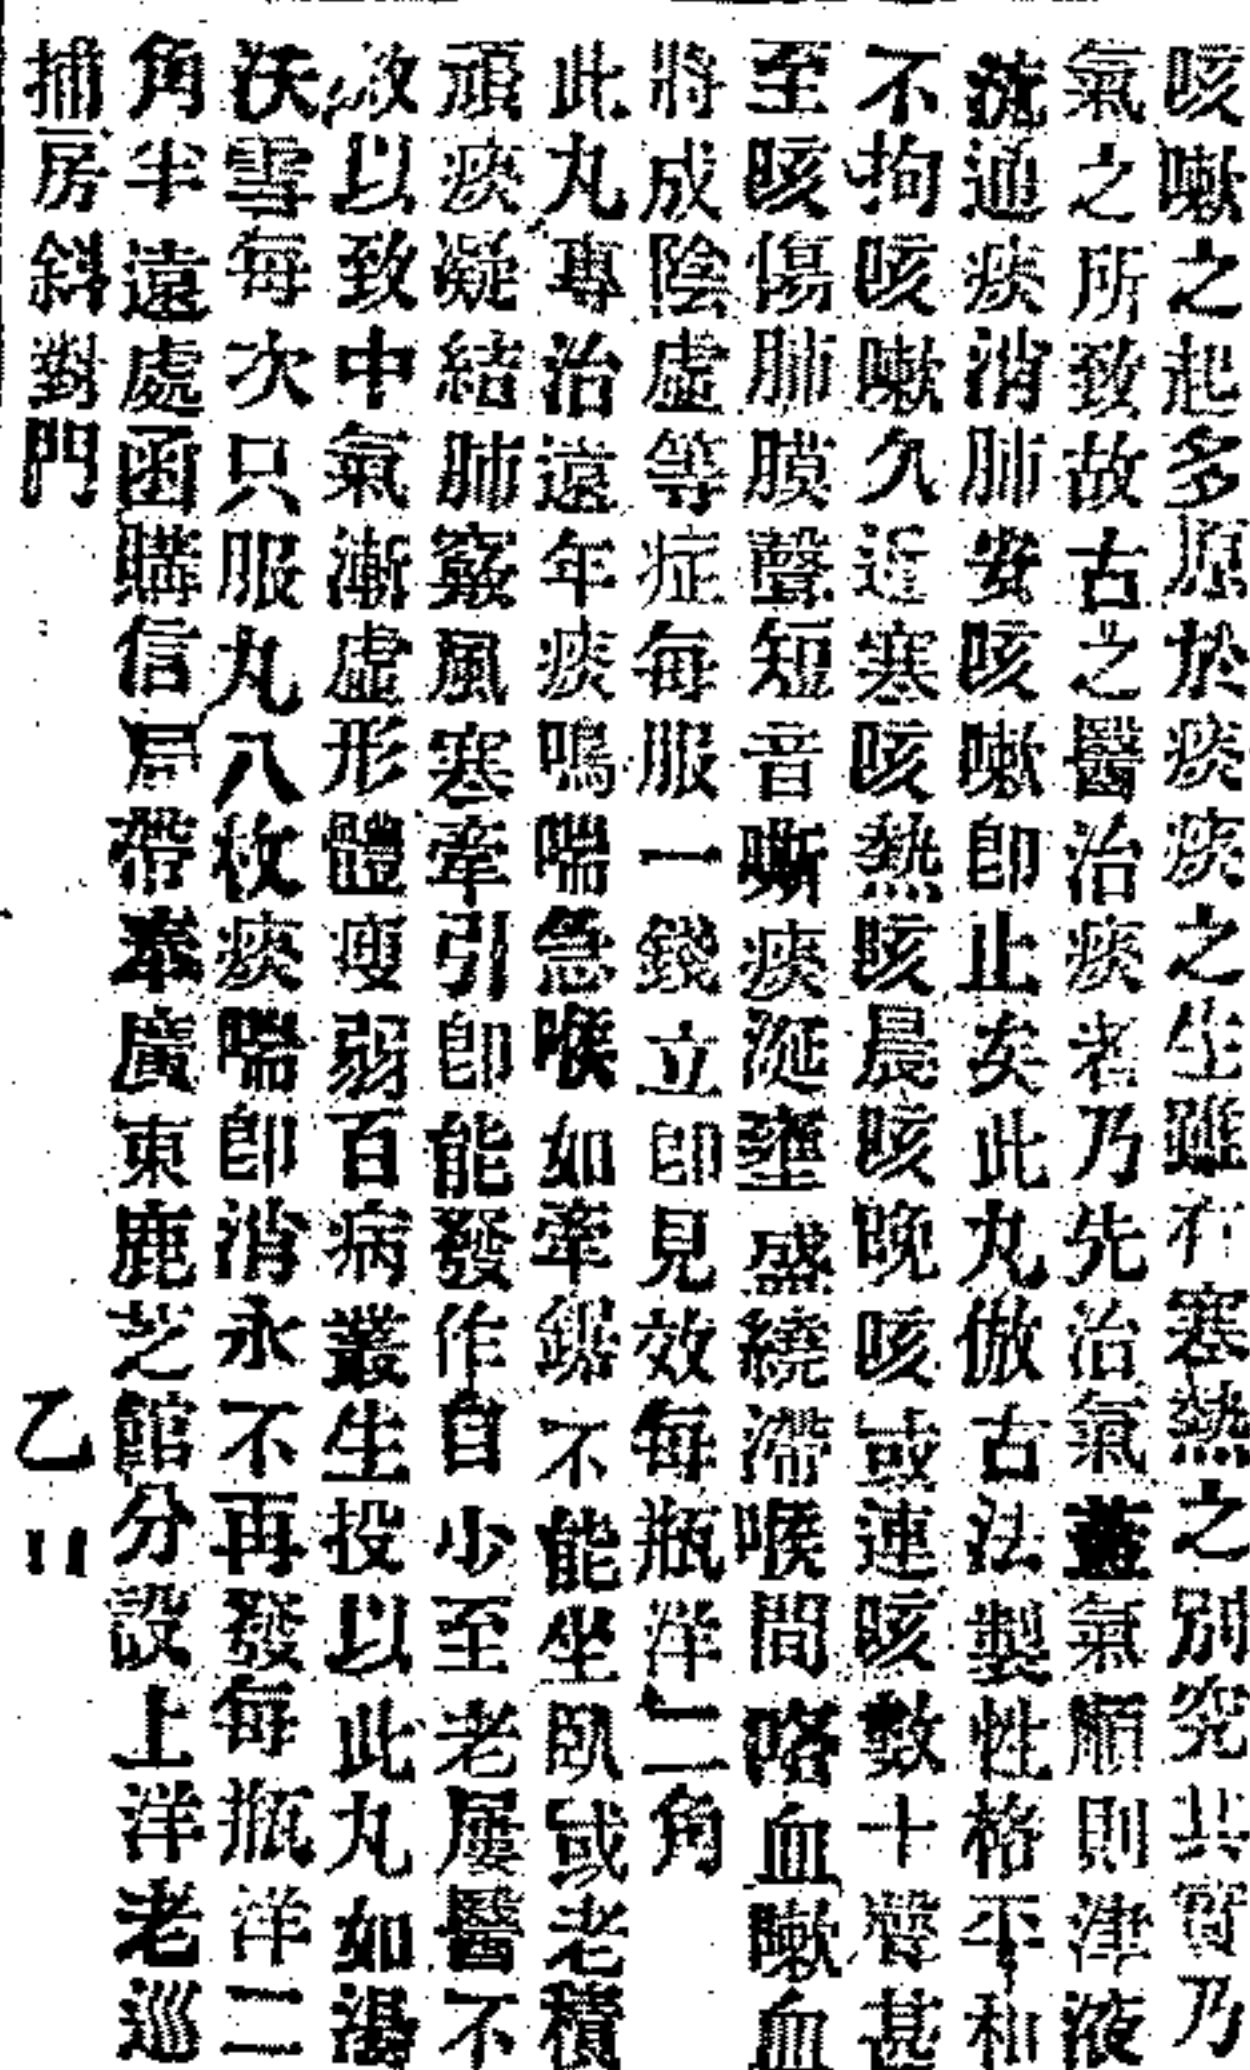 咳嗽之起多原於痰痰之生雖有寒熱之別究其實乃
氣之所致故古之醫治痰者乃先治氣蓋氣順則津液
流通痰消肺安咳嗽即止矣此丸倣古法製性格平和
不拘咳嗽久近寒咳熱咳晨咳晚咳或連咳數十聲甚
至咳傷肺膜聲短音嘶痰涎壅盛繞滯喉間咯血嗽血
將成陰虛等症每服一錢立即見效每瓶洋二角
此丸專治遠年痰鳴喘急喉如牽鋸不能坐臥或老積
頑痰凝結肺竅風寒牽引即能發作自少至老屢醫不
效以致中氣漸虛形體瘦弱百病叢生投以此丸如湯
沃雪每次只服丸八枚痰喘即消永不再發每瓶洋二
角半遠處函購信局帶奉廣東鹿芝館分設上洋老巡
捕房斜對門 乙